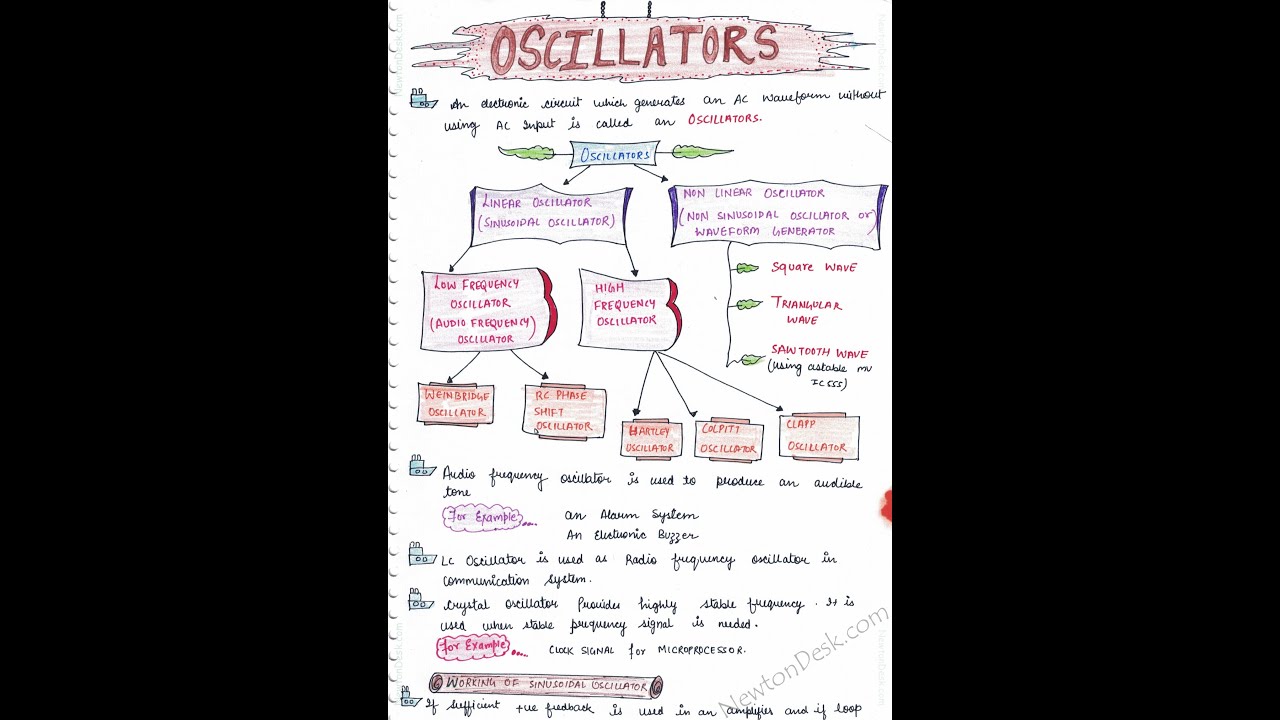 OSCILLATORS
An electronic circuit which generates an AC waveform without
using AC Input is called an OSCILLATORS.
OSCILLATORS
LINEAR OSCILLATOR
(SINUSOIDAL OSCILLATOR)
NON LINEAR OSCILLATOR
(NON SINUSOIDAL OSCILLATOR or)
WAVEFORM GENERATOR
LOW FREQUENCY
OSCILLATOR
(AUDIO FREQUENCY)
OSCILLATOR
HIGH
FREQUENCY
OSCILLATOR
Square WAVE
TRIANGULAR
WAVE
SAWTOOTH WAVE
(using astable mv
IC 555)
WEINBRIDGE
OSCILLATOR
RC PHASE
SHIFT
OSCILLATOR
HARTLEY
OSCILLATOR
COLPITT
OSCILLATOR
CLAPP
OSCILLATOR
Audio frequency oscillator is used to produce an audible
tone
For Example....
an Alarm System
An Electronic Buzzer
LC Oscillator is used as Radio frequency oscillator in
communication system.
Crystal oscillator Provides highly stable frequency. It is
used when stable frequency signal is needed.
For Example....
CLOCK SIGNAL for MICROPROCESSOR.
WORKING OF SINUSOIDAL OSCILLATOR
If sufficient +ve feedback is used in an amplifies and if loop
NewtonDesk.com